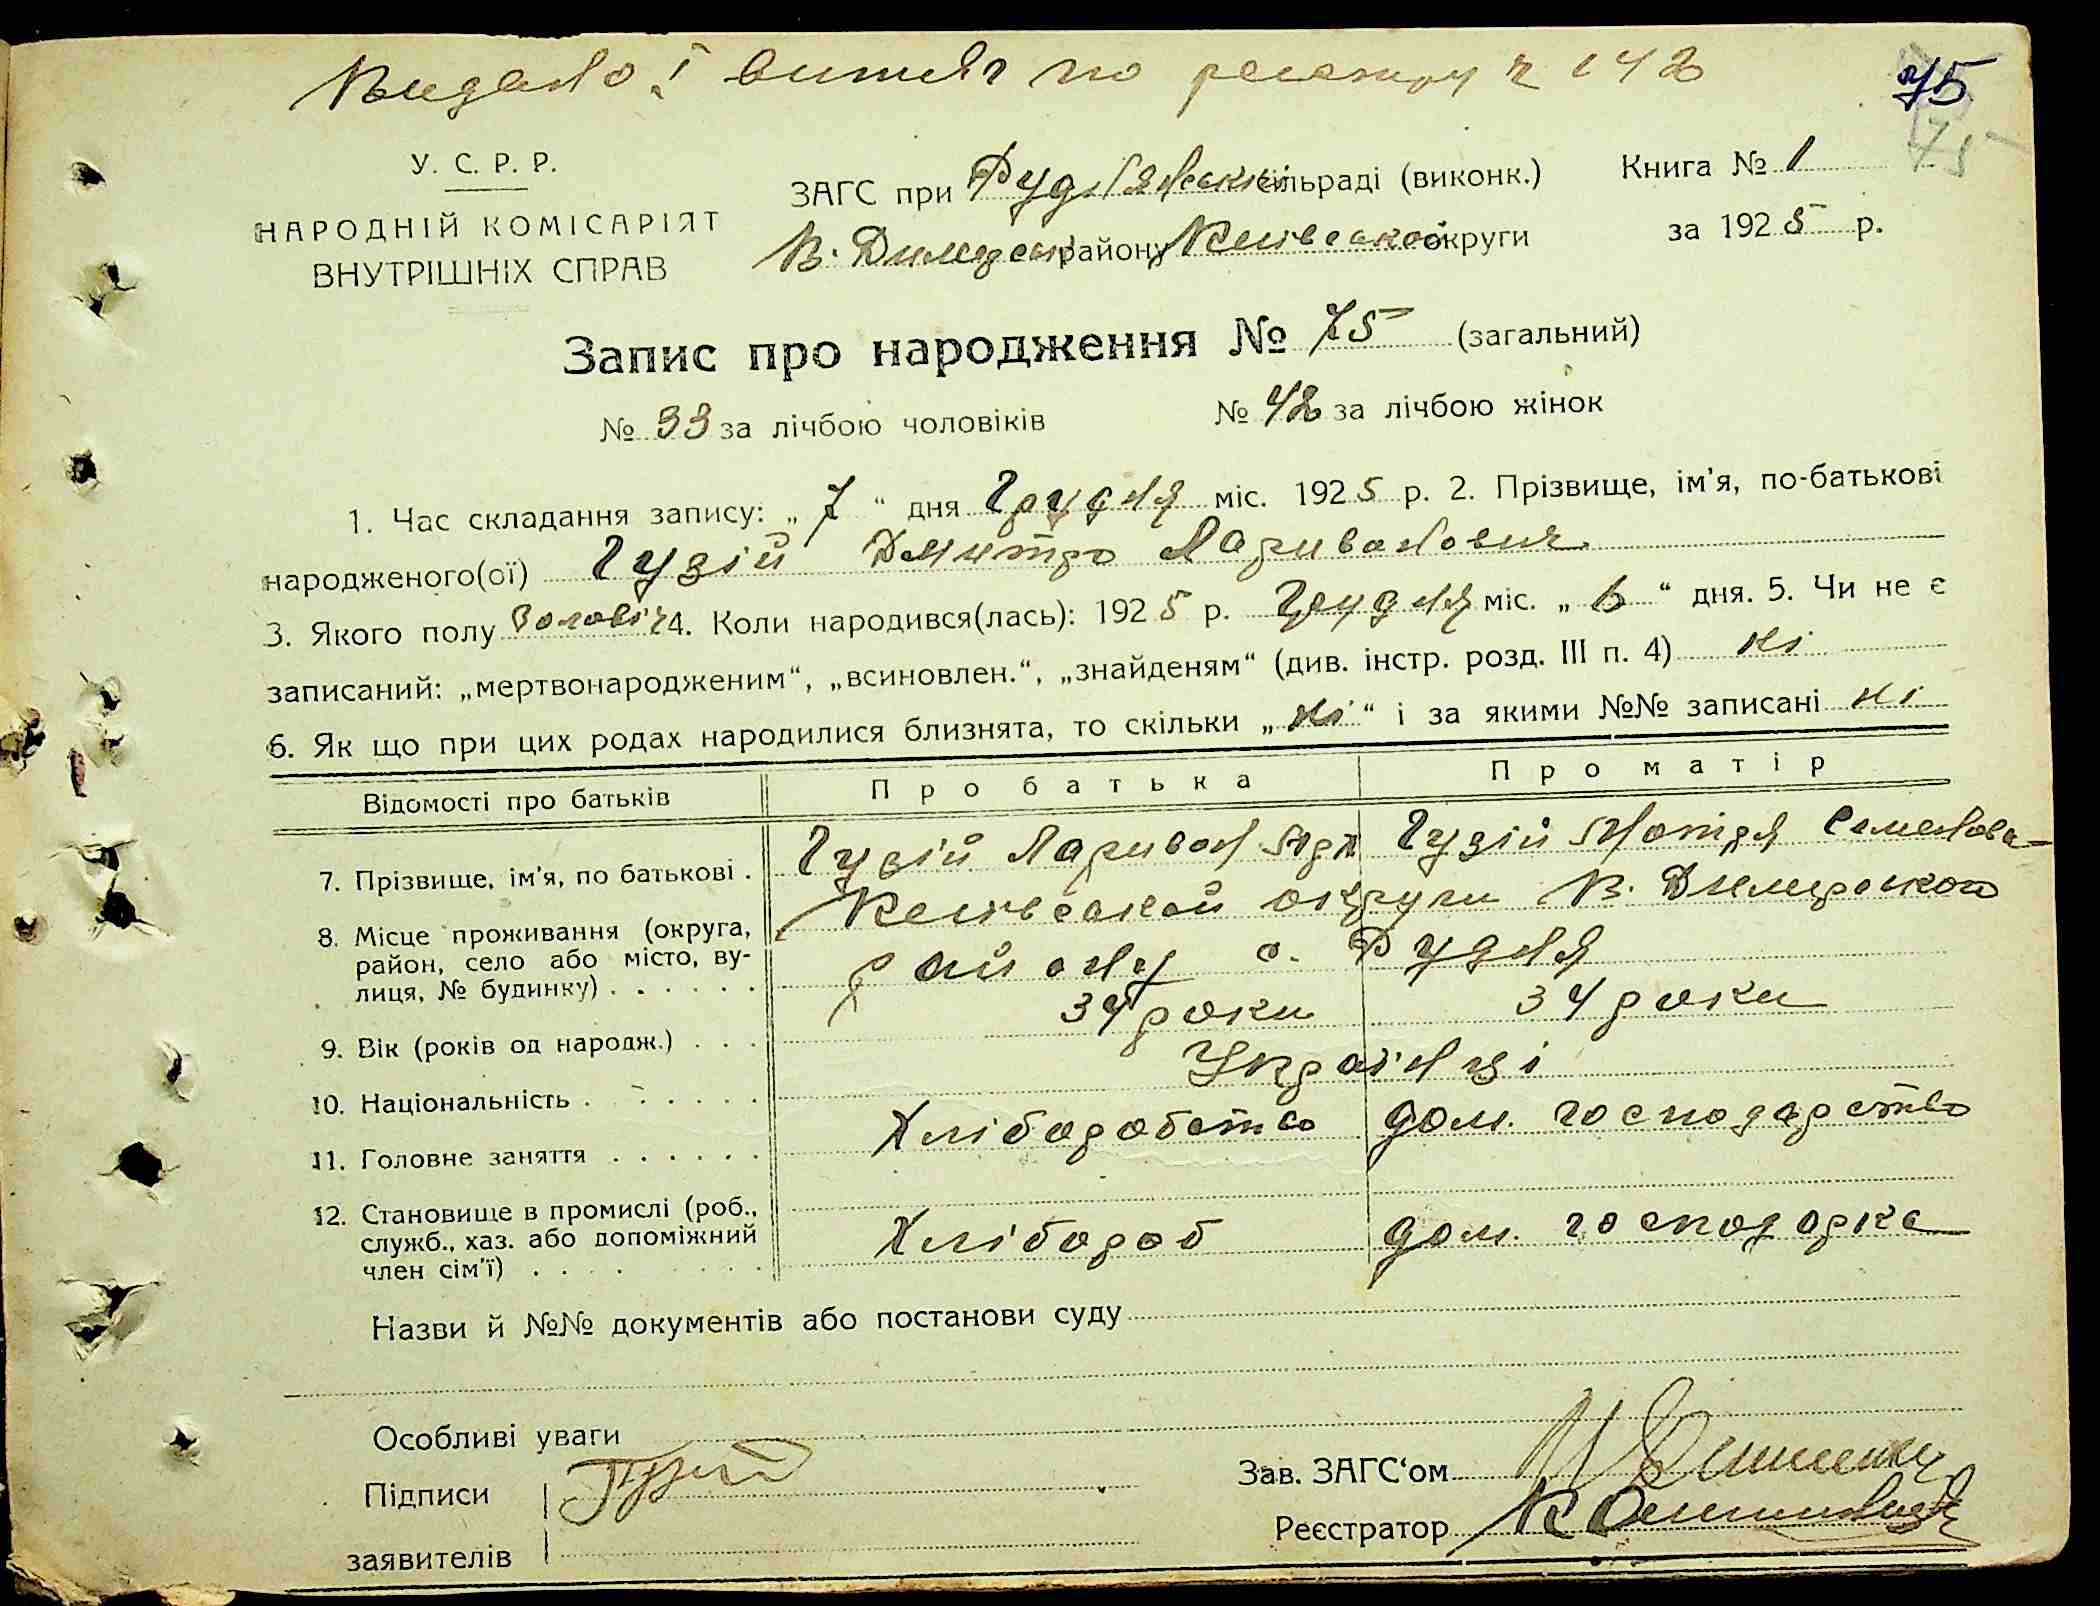 Видано 1 витяг по реєстру ч 142
75
75
У. С. Р. Р.
НАРОДНІЙ КОМІСАРІЯТ
ВНУТРІШНІХ СПРАВ
ЗАГС при Руднянській сільраді (виконк.)
В. Димерськ району Київської округи
Книга № 1
за 1925 р.
Запис про народження № 75 (загальний)
№ 33 за лічбою чоловіків № 42 за лічбою жінок
1. Час складання запису: „ 7 “ дня Грудня міс. 1925 р. 2. Прізвище, ім'я, по-батькові
народженого(ої) Гузій Дмитро Ларивонович
3. Якого полу чоловіч 4. Коли народився(лась): 1925 р. Грудня міс. „ 6 “ дня. 5. Чи не є
записаний: „мертвонародженим“, „всиновлен.“, „знайденям“ (див. інстр. розд. III п. 4) ні
6. Як що при цих родах народилися близнята, то скільки „ ні “ і за якими №№ записані ні
Відомості про батьків Про батька Про матір
7. Прізвище, ім'я, по батькові . Гузій Ларивон Гузій Мотря Семенова
8. Місце проживання (округа, Київської округи В. Димерського
район, село або місто, ву- району с. Рудня
лиця, № будинку) . . . . . .
9. Вік (років од народж.) . . . 34 роки 34 роки
10. Національність . . . . . . . Українці
11. Головне заняття . . . . . . Хліборобство дом. господарство
12. Становище в промислі (роб.,
служб., хаз. або допоміжний Хлібороб дом. господарка
член сім'ї) . . . . . . . . .
Назви й №№ документів або постанови суду
Особливі уваги
Підписи Гузій
заявителів
Зав. ЗАГС‘ом
Реєстратор